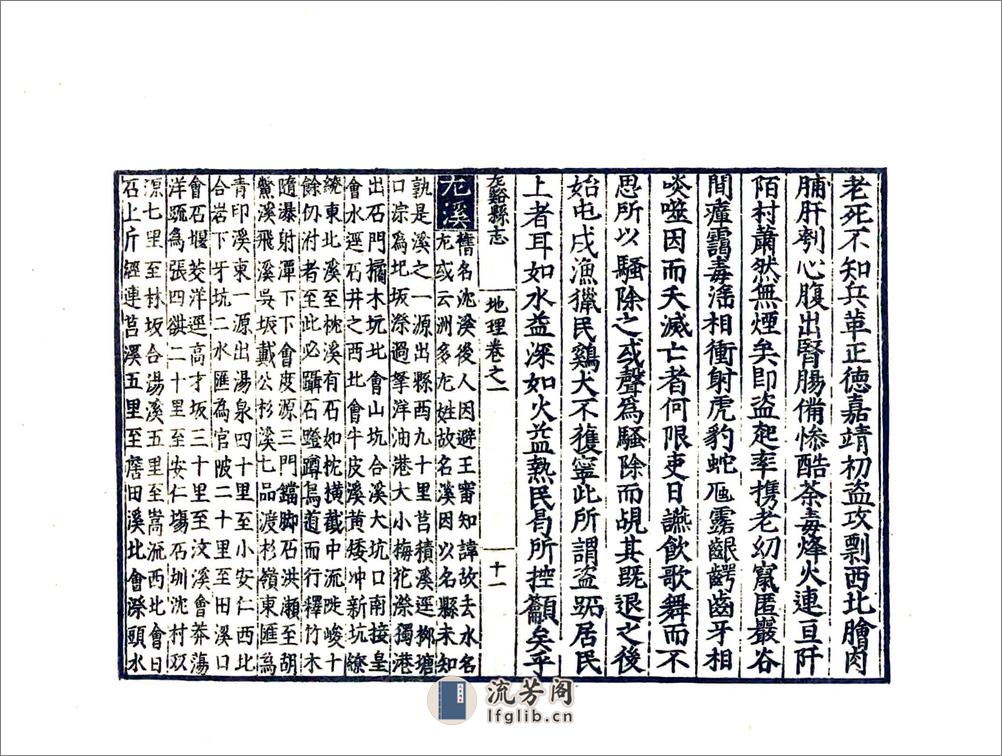 老死不知兵革正德嘉靖初盜攻剽西北膾肉
脯肝刳心腹出腎腸備慘酷荼毒烽火連亘阡
陌村蕭然無煙矣即盜起率携老幼竄匿巖谷
間瘴靄毒滛相衝射虎豹蛇虺露齦齶齒牙相
啖噬因而夭滅亡者何限吏日讌飲歌舞而不
思所以騷除之或聲爲騷除而覘其既退之後
始屯戌漁獵民鷄犬不獲寧此所謂盜跖居民
上者耳如水益深如火益熱民曷所控籲矣乎
尤谿縣志 地理卷之一 十一
尤溪
舊名沈溪後人因避王審知諱故去水名
尤或云洲多尤姓故名溪因以名縣未知
孰是溪之一源出縣西九十里莒積溪逕栁塘
口淙爲圯坂漈過拏洋油港大小梅花漈獨港
出石門橘木坑北會山坑合溪大坑口南接皇
會水逕石井之西北會牛皮溪黃矮冲新坑繚
繞東北溪至枕溪有石如枕橫截中流陡峻十
餘仞泭者至此必躡石蹬蹲鳥道而行釋竹木
隨瀑射潭下下會皮源三門鐺脚石洪瀨至胡
鱟溪飛溪吳坂戴公杉溪七品渡杉嶺東匯爲
青印溪東一源出湯泉四十里至小安仁西北
合岩下牙坑二水匯爲官陂二十里至田溪口
會石堰茭洋逕高才坂三十里至汶溪會莽蕩
洋䟽爲張四䥥二十里至安仁塲石圳沈村双
源七里至林坂合湯溪五里至嵩流西北會日
石上斤經連莒溪五里至㢆田溪北會漈頭水
流芳阁
lfglib.cn